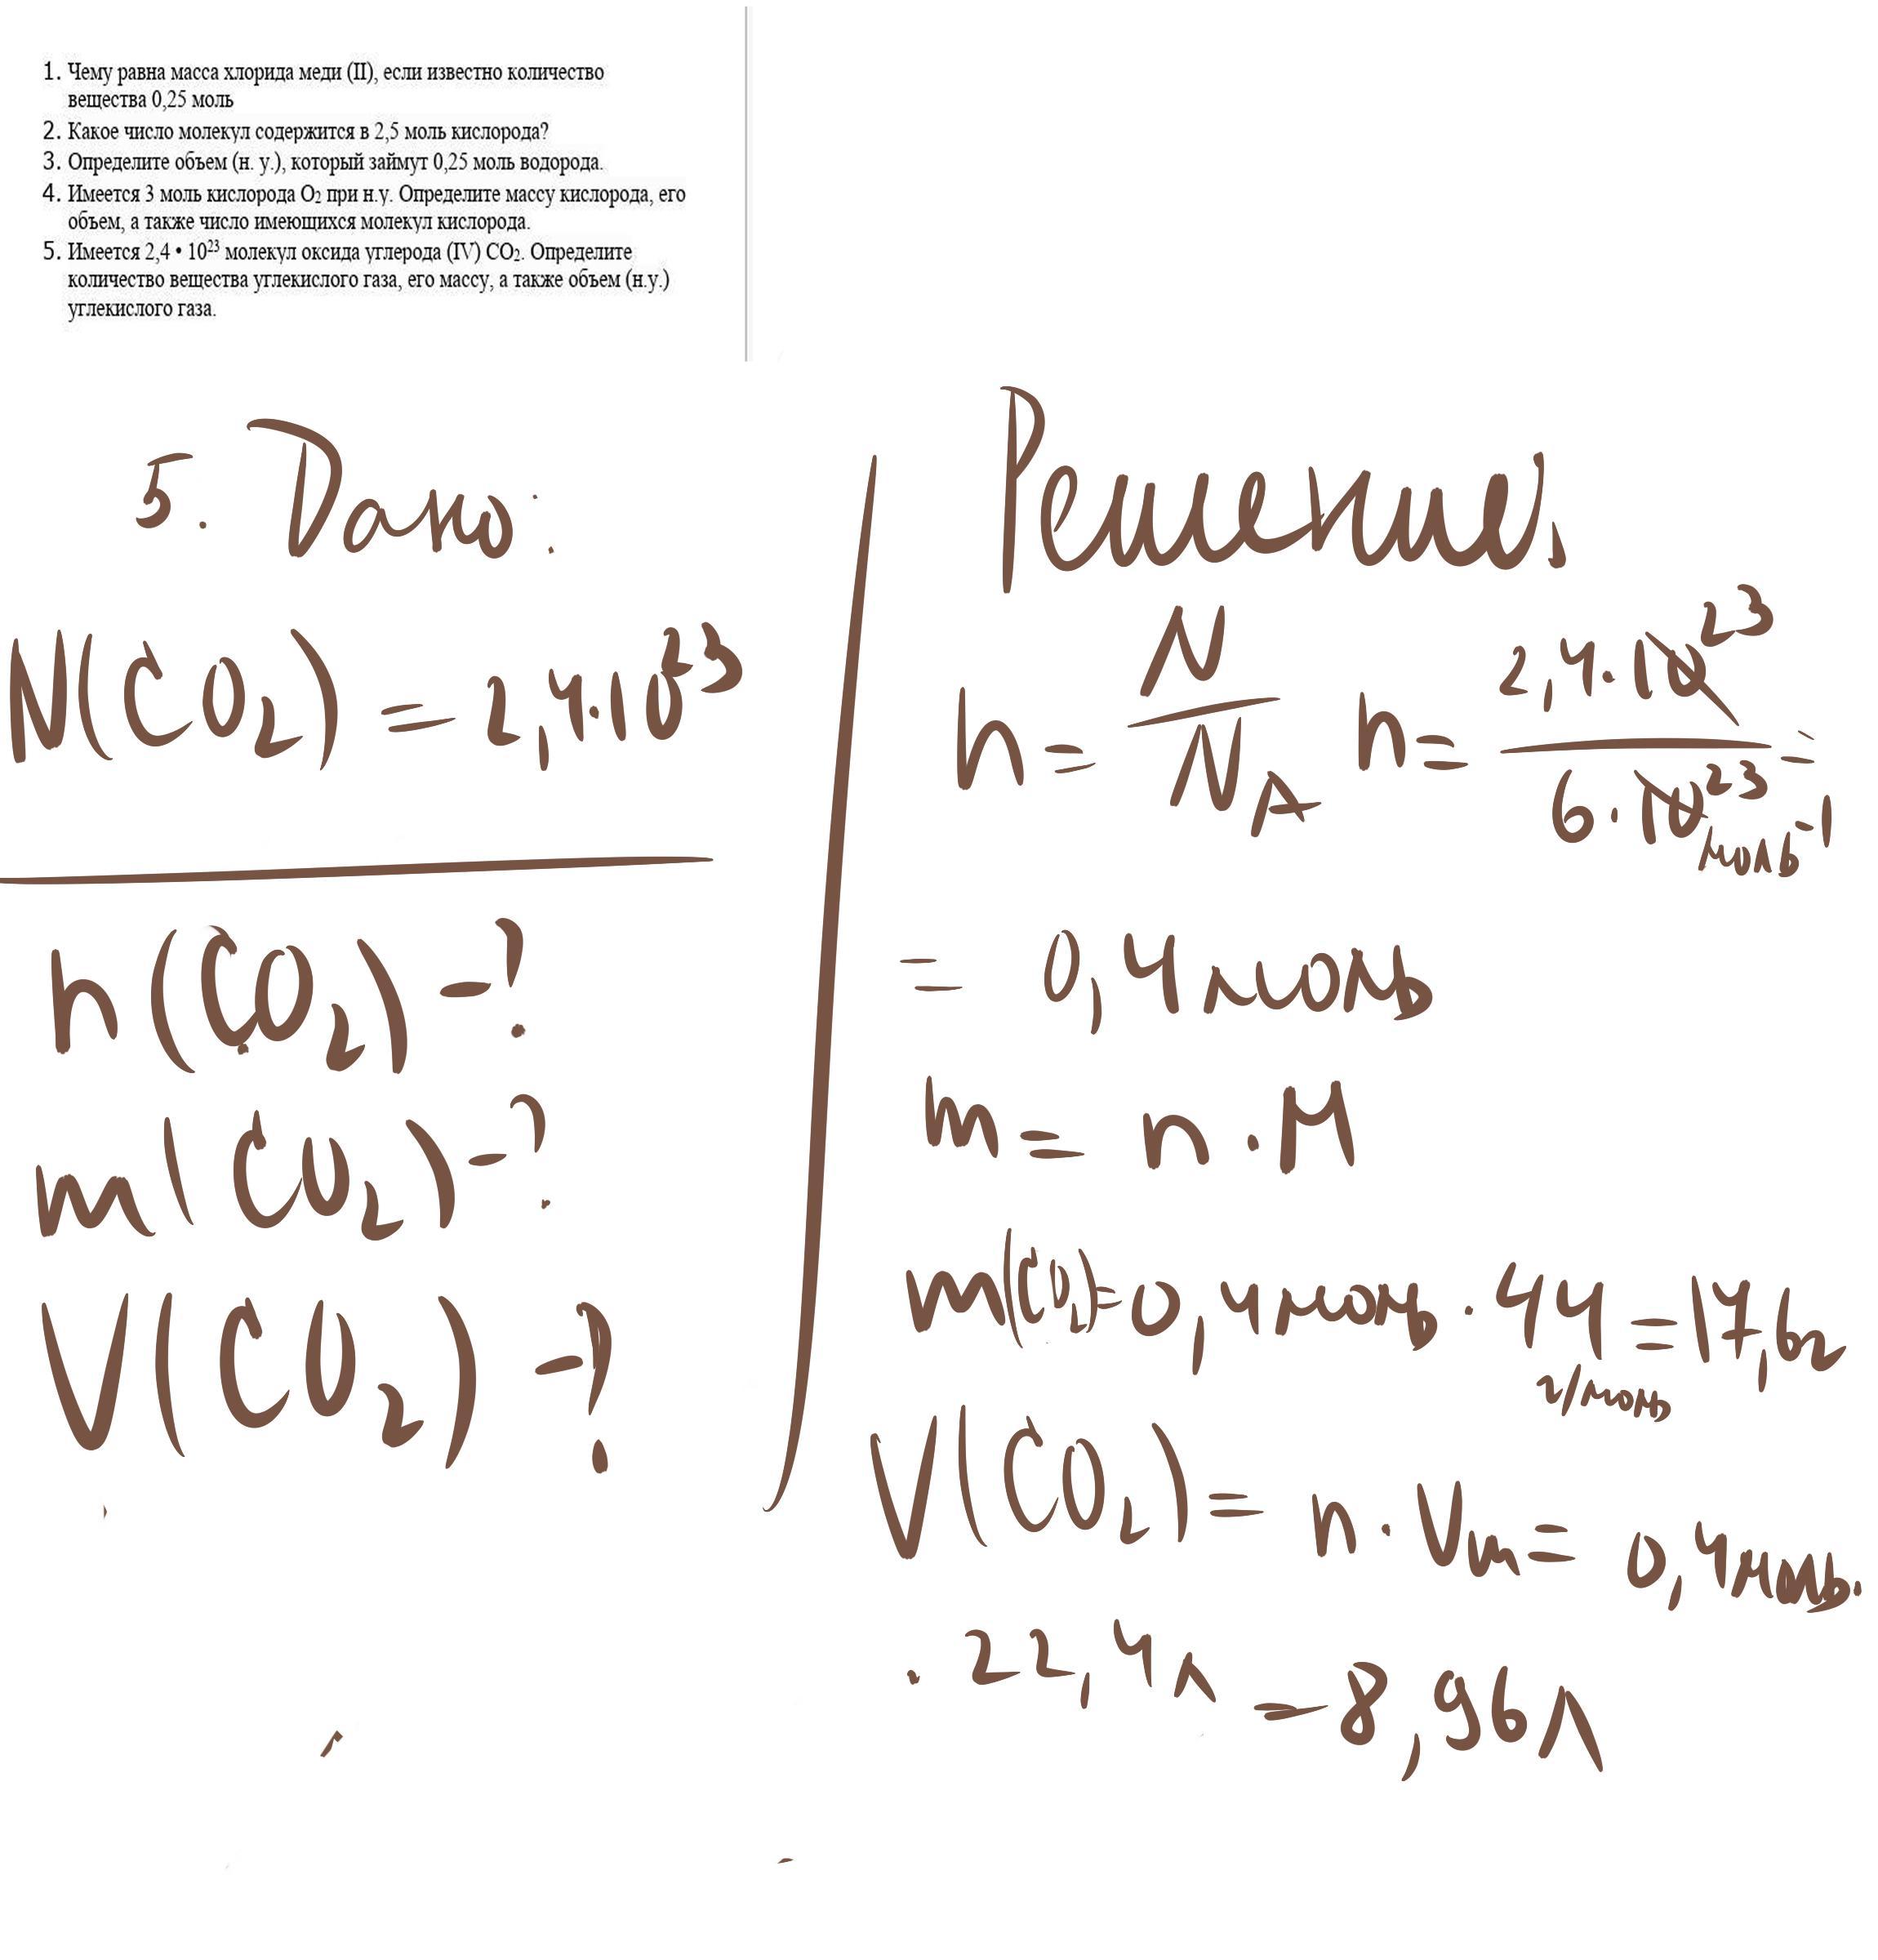 1. Чему равна масса хлорида меди (II), если известно количество
вещества 0,25 моль
2. Какое число молекул содержится в 2,5 моль кислорода?
3. Определите объем (н. у.), который займут 0,25 моль водорода.
4. Имеется 3 моль кислорода O₂ при н.у. Определите массу кислорода, его
объем, а также число имеющихся молекул кислорода.
5. Имеется 2,4 • 10²³ молекул оксида углерода (IV) CO₂. Определите
количество вещества углекислого газа, его массу, а также объем (н.у.)
углекислого газа.
5. Дано:
N(CO₂) = 2,4·10²³
n(CO₂) - ?
m(CO₂) - ?
V(CO₂) - ?
Решение:
n = N/N_A n = 2,4·10²³/6·10²³ моль⁻¹ =
= 0,4 моль
m = n · M
m(CO₂) = 0,4 моль · 44 г/моль = 17,6 г
V(CO₂) = n · Vm = 0,4 моль ·
· 22,4 л = 8,96 л